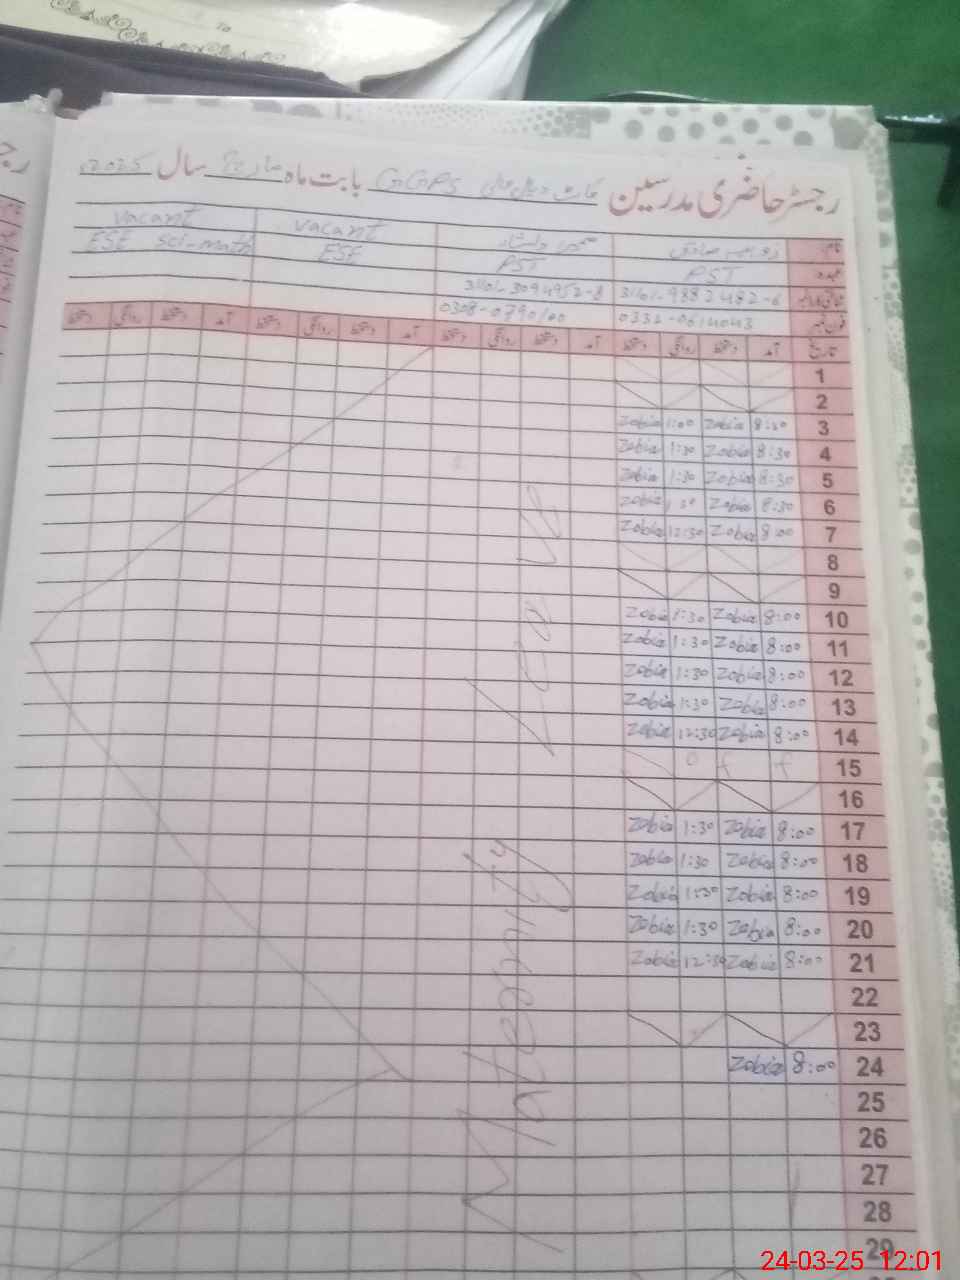 رجسٹر حاضری مدرسین GGPS بابت ماہ مارچ سال 2025
نام
PST PST ESE ESE sci-math
vacant vacant
31101-9883482-6 31101-3094952-8
فون نمبر 0332-0614043 0308-0790100
تاریخ آمد دستخط روانگی دستخط آمد دستخط روانگی دستخط آمد دستخط روانگی دستخط آمد دستخط روانگی دستخط
1
2
3 8:30 Zobia 1:00 Zobia
4 8:30 Zobia 1:30 Zobia
5 8:30 Zobia 1:30 Zobia
6 8:30 Zobia 1:30 Zobia
7 8:00 Zobia 12:30 Zobia
8
9
10 8:00 Zobia 1:30 Zobia
11 8:00 Zobia 1:30 Zobia
12 8:00 Zobia 1:30 Zobia
13 8:00 Zobia 1:30 Zobia
14 8:00 Zobia 12:30 Zobia
15 o f f
16
17 8:00 Zobia 1:30 Zobia
18 8:00 Zobia 1:30 Zobia
19 8:00 Zobia 1:30 Zobia
20 8:00 Zobia 1:30 Zobia
21 8:00 Zobia 12:30 Zobia
22
23
24 8:00 Zobia
25
26
27
28
29
Maternity Leave
24-03-25 12:01